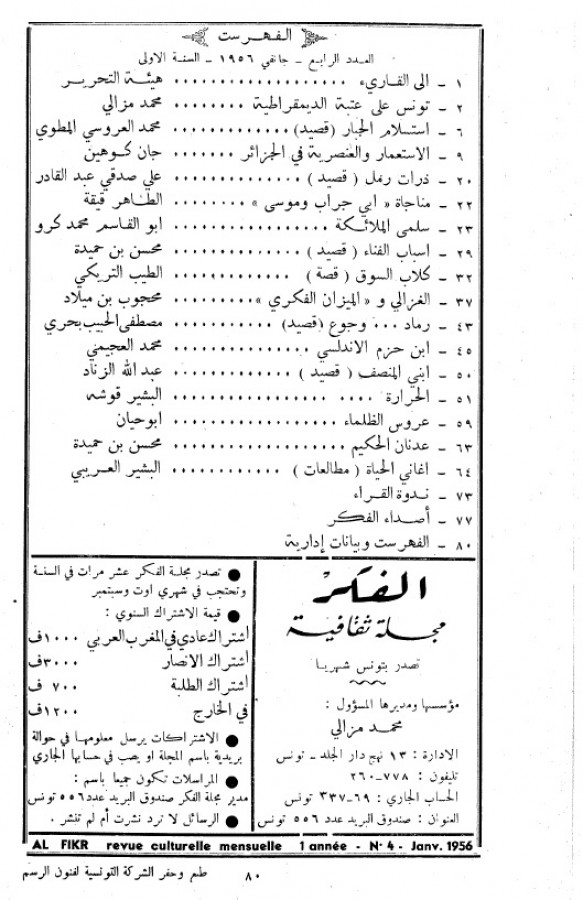 الفهرست
العدد الرابع - جانفي ١٩٥٦ - السنة الاولى
١ - الى القارىء .................. هيئة التحرير
٢ - تونس على عتبة الديمقراطية ......... محمد مزالي
٦ - استسلام الجبار (قصيد) ............. محمد العروسي المطوي
٩ - الاستعمار والعنصرية في الجزائر ........ جان كوهين
٢٠ - ذرات رمل ( قصيد ) .............. علي صدقي عبد القادر
٢٢ - مناجاة « ابي جراب وموسى » ......... الطاهر قيقة
٢٣ - سلمى الملائكة .................. ابو القاسم محمد كرو
٢٩ - اسباب الفناء ( قصيد ) ............ محسن بن حميدة
٣٢ - كلاب السوق ( قصة ) ............ الطيب التريكي
٣٧ - الغزالي و « الميزان الفكري » ......... محجوب بن ميلاد
٤٣ - رماد ... وجوع (قصيد) ........... مصطفى الحبيب بحري
٤٥ - ابن حزم الاندلسي ................ محمد العجيمي
٥٠ - ابني المنصف ( قصيد ) ............. عبد الله الزناد
٥١ - الحرارة .... ................ البشير قوشه
٥٩ - عروس الظلماء .................. ابوحيان
٦٣ - عدنان الحكيم .................. محسن بن حميدة
٦٤ - اغاني الحياة ( مطالعات ) ............ البشير العريبي
٧٣ - ندوة القراء
٧٧ - أصداء الفكر
٨٠ - الفهرست وبيانات إدارية
الفكر
مجلة ثقافية
تصدر بتونس شهريا
مؤسسها ومديرها المسؤول :
محمد مزالي
الادارة : ١٣ نهج دار الجلد - تونس
تليفون : ٧٧٨-٢٦٠
الحساب الجاري : ٦٩-٣٣٧ تونس
العنوان : صندوق البريد عدد ٥٥٦ تونس
● تصدر مجلة الفكر عشر مرات في السنة
وتحتجب في شهري اوت وسبتمبر
● قيمة الاشتراك السنوي :
أشتراك عادي في المغرب العربي ١٠٠٠ف
أشتراك الانصار ٣٠٠٠ف
أشتراك الطلبة ٧٠٠ ف
في الخارج ١٢٠٠ف
● الاشتراكات يرسل معلومها في حوالة
بريدية باسم المجلة او يصب في حسابها الجاري
● المراسلات تكون جميعا باسم :
مدير مجلة الفكر صندوق البريد عدد ٥٥٦ تونس
● الرسائل لا ترد نشرت أم لم تنشر .
AL FIKR revue culturelle mensuelle 1 année - N° 4 - Janv. 1956
٨٠ طبع وحفر الشركة التونسية لفنون الرسم